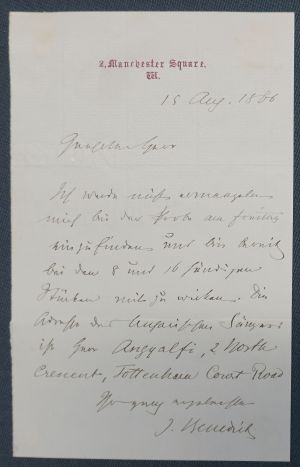 2, Manchester Square.
W.
15 Aug. 1866
Geehrter Herr
Ich werde nicht ermangeln
mich bei der Probe am Freitag
einzufinden und bin bereit
bei den 8 und 16 händigen
Stücken mitzuwirken. Die
Adresse des Ungarischen Sängers
ist Herr Angyalfi, 2 North
Crescent, Tottenham Court Road
Ihr ganz ergebenster
J. Benedict